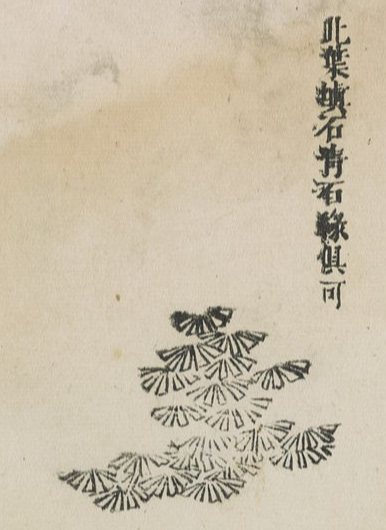 此葉填石青石綠俱可